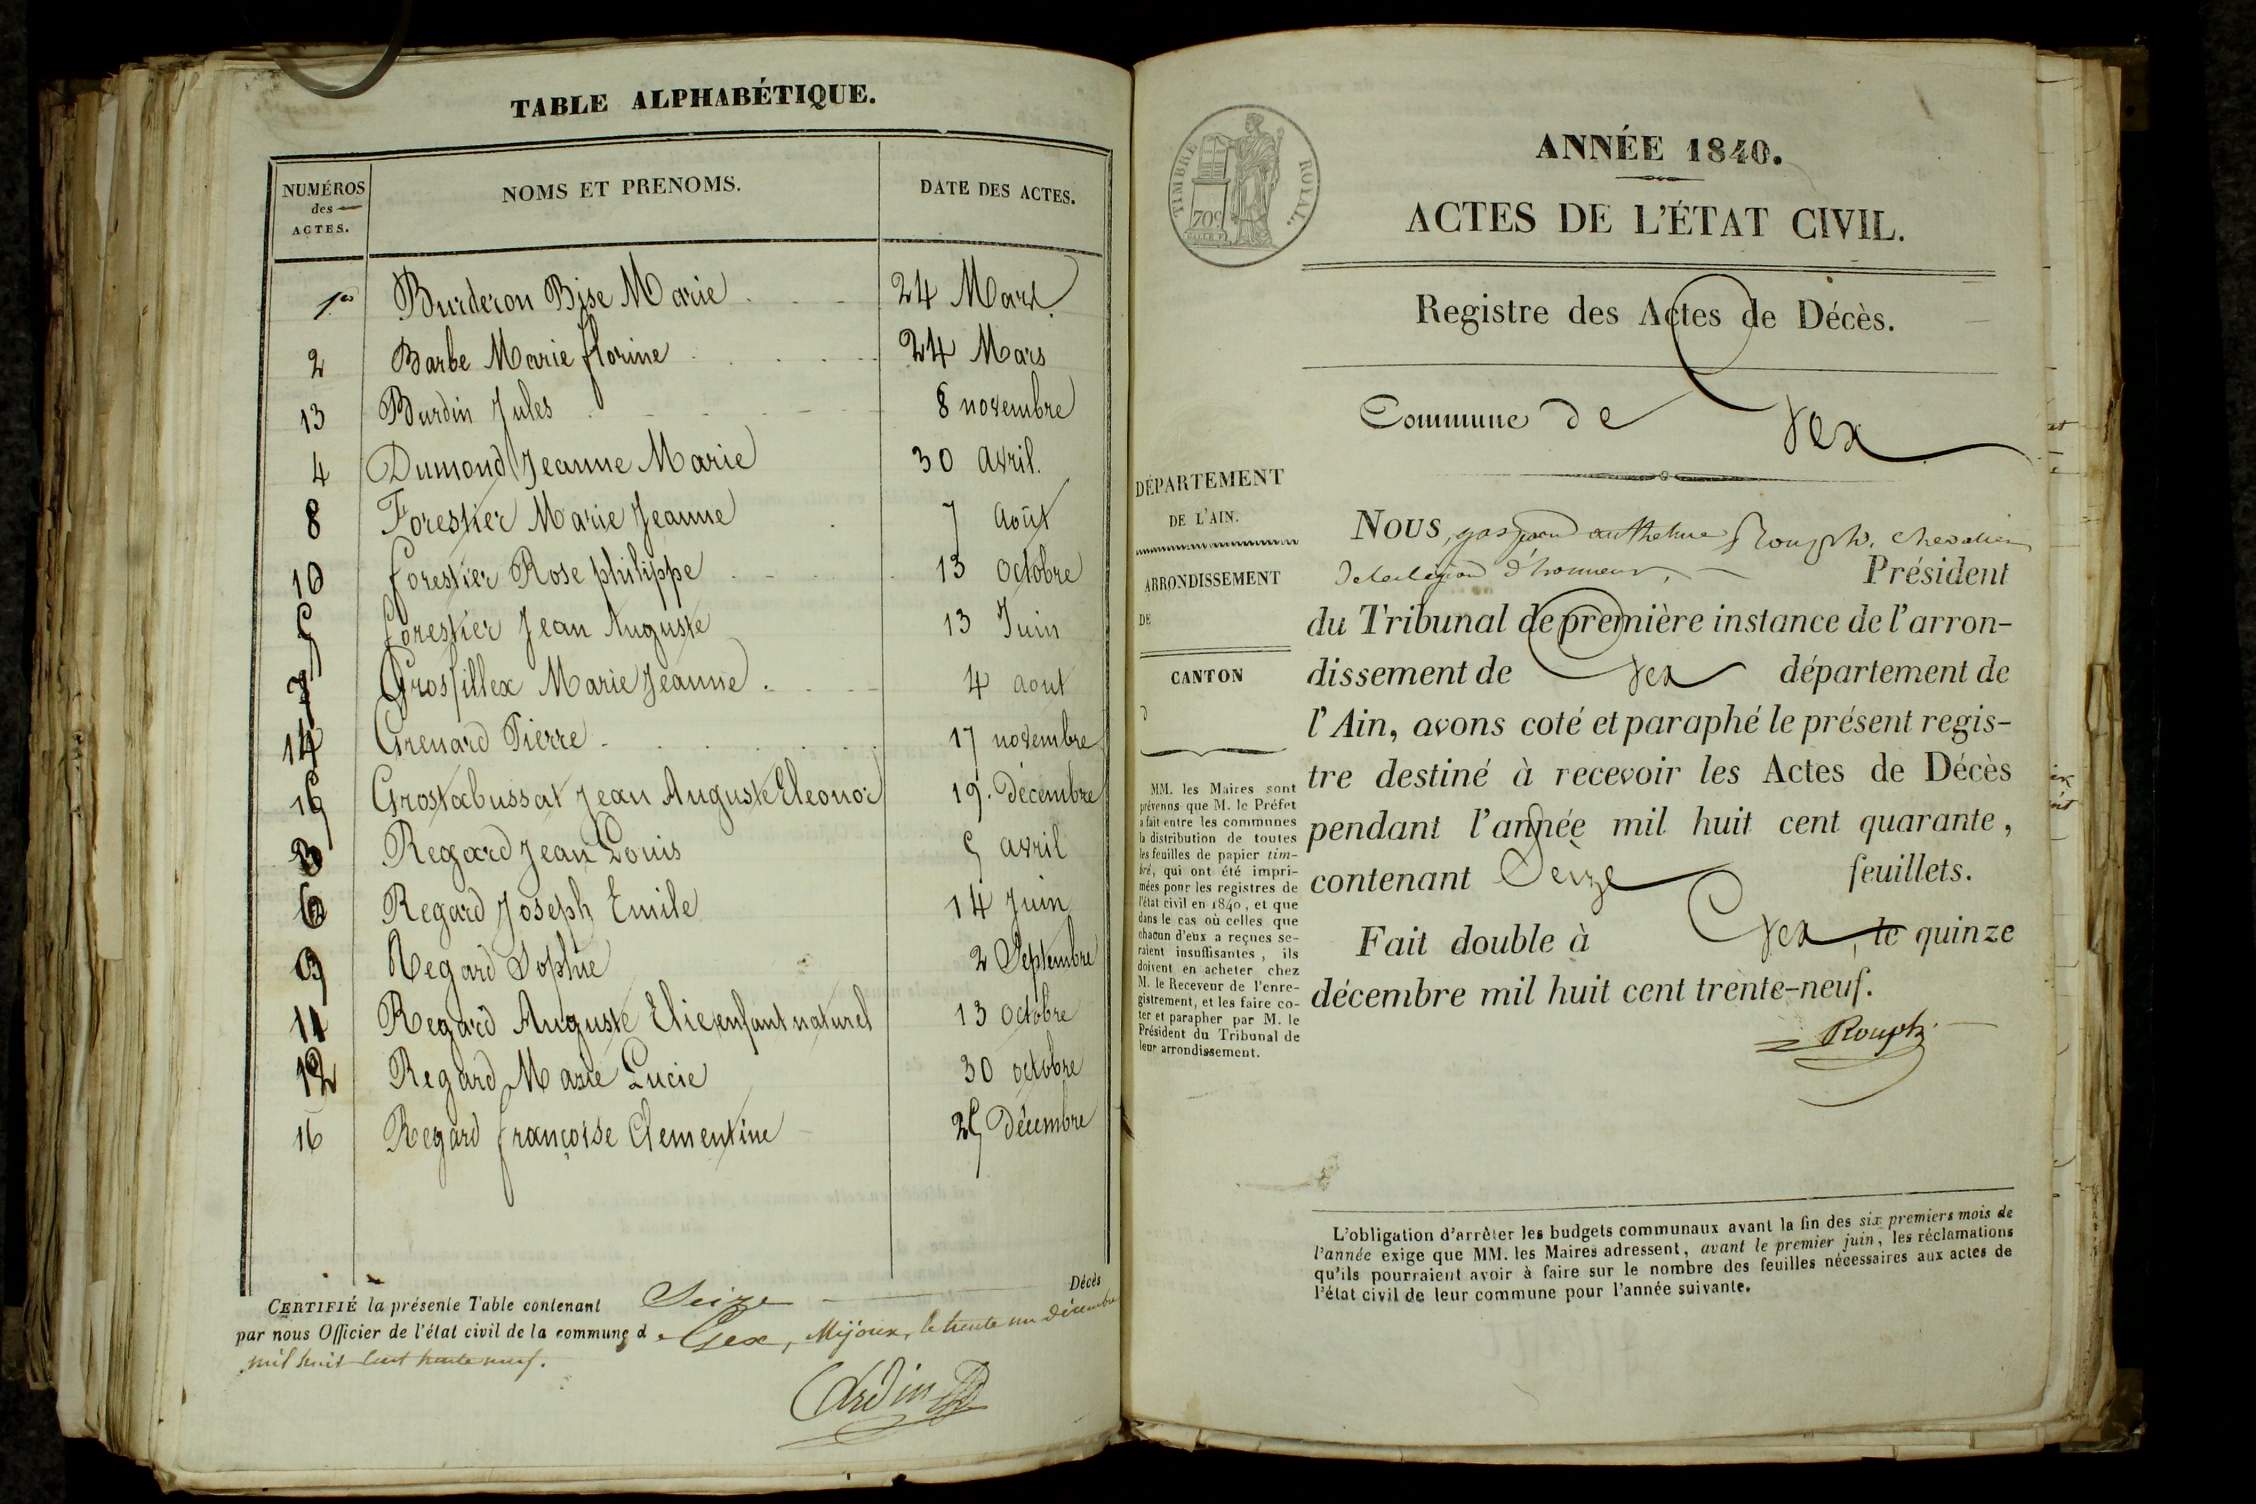 TABLE ALPHABÉTIQUE.
NUMÉROS des ACTES. NOMS ET PRENOMS. DATE DES ACTES.
1er Burderon Bise Marie 24 Mars
2 Barbe Marie florine 24 Mars
13 Burdin Jules 8 novembre
4 Dumond Jeanne Marie 30 avril.
8 Forestier Marie Jeanne 7 Août
10 forestier Rose philippe 13 octobre
5 forestier Jean Auguste 13 Juin
7 Grosfillex Marie Jeanne. 4 aout
14 Grenard Pierre 17 novembre
15 Grostabussat Jean Auguste Eleonor 19. Décembre
3 Regard Jean Louis 5 avril
6 Regard Joseph Emile 14 Juin
9 Regard Sophie 2 Septembre
11 Regard Auguste Elie enfant naturel 13 octobre
12 Regard Marie Lucie 30 octobre
16 Regard françoise Clementine 25 Décembre
CERTIFIÉ la présente Table contenant Seize Décès
par nous Officier de l'état civil de la commune de Gex, Mijoux, le trente un décembre
mil huit cent trente neuf.
TIMBRE ROYAL.
70c
ANNÉE 1840.
ACTES DE L'ÉTAT CIVIL.
Registre des Actes de Décès.
Commune de Gex
DÉPARTEMENT
DE L'AIN.
ARRONDISSEMENT
DE
CANTON
d
MM. les Maires sont
prévenus que M. le Préfet
a fait entre les communes
la distribution de toutes
les feuilles de papier tim-
bré, qui ont été impri-
mées pour les registres de
l'état civil en 1840, et que
dans le cas où celles que
chacun d'eux a reçues se-
raient insuffisantes, ils
doivent en acheter chez
M. le Receveur de l'enre-
gistrement, et les faire co-
ter et parapher par M. le
Président du Tribunal de
leur arrondissement.
NOUS, gaspard anthelme Rouph, chevalier
de la légion d'honneur, Président
du Tribunal de première instance de l'arron-
dissement de Gex département de
l'Ain, avons coté et paraphé le présent regis-
tre destiné à recevoir les Actes de Décès
pendant l'année mil huit cent quarante,
contenant Seize feuillets.
Fait double à Gex, le quinze
décembre mil huit cent trente-neuf.
Rouph
L'obligation d'arrêter les budgets communaux avant la fin des six premiers mois de
l'année exige que MM. les Maires adressent, avant le premier juin, les réclamations
qu'ils pourraient avoir à faire sur le nombre des feuilles nécessaires aux actes de
l'état civil de leur commune pour l'année suivante.